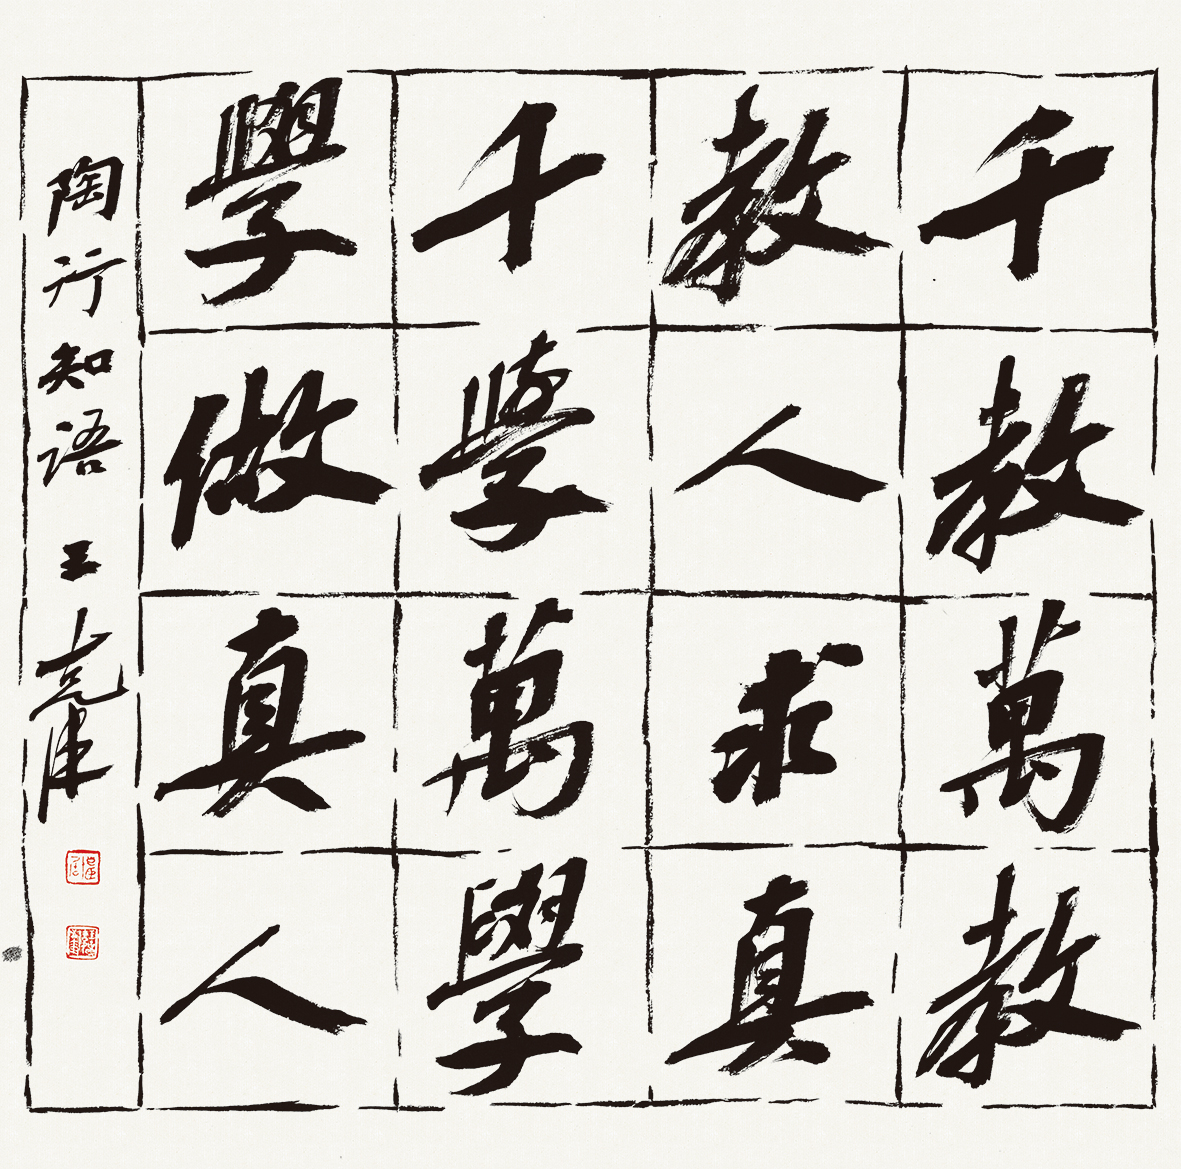 千教萬教
教人求真
千學萬學
學做真人
陶行知语 王